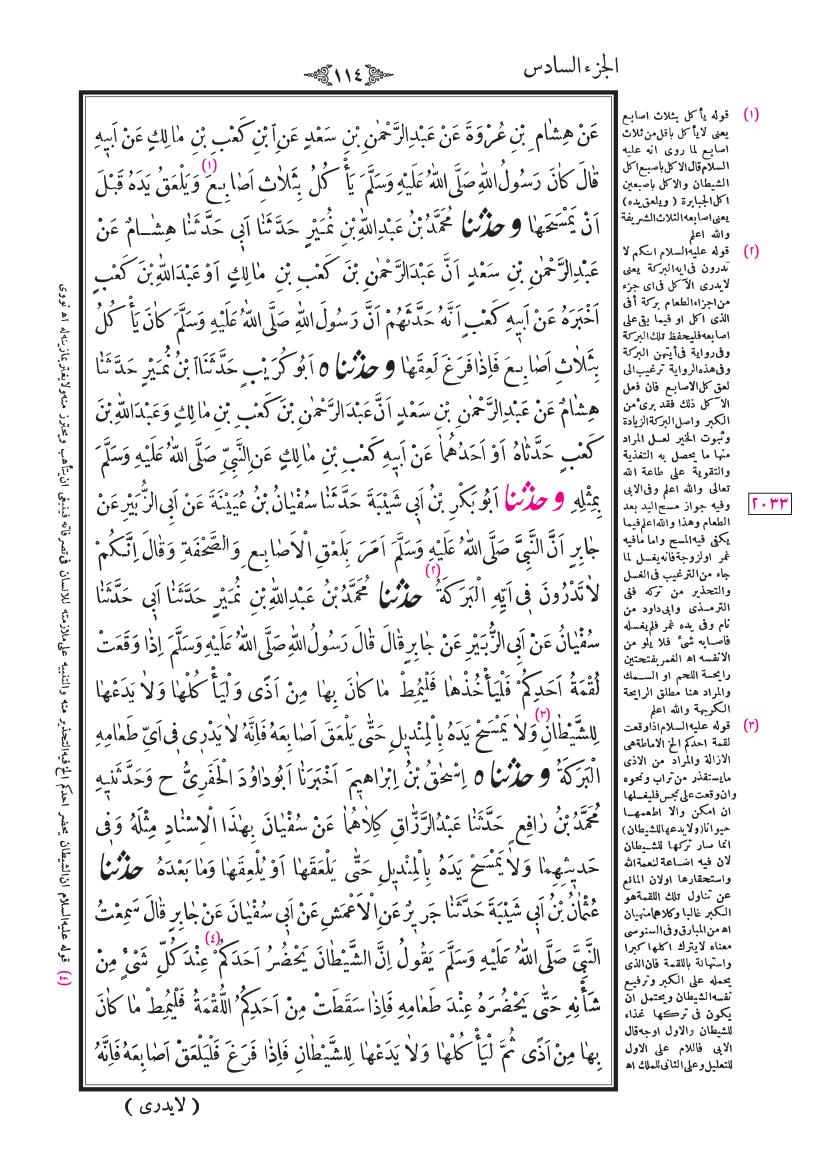 الجزء السادس
١١٤
عَنْ هِشَامِ بْنِ عُرْوَةَ عَنْ عَبْدِالرَّحْمٰنِ بْنِ سَعْدٍ عَنِ ابْنِ كَعْبِ بْنِ مَالِكٍ عَنْ اَبِيهِ
قَالَ كَانَ رَسُولُ اللّٰهِ صَلَّى اللّٰهُ عَلَيْهِ وَسَلَّمَ يَأْكُلُ بِثَلَاثِ اَصَابِعَ (١) وَيَلْعَقُ يَدَهُ قَبْلَ
اَنْ يَمْسَحَهَا وحَدَّثَنَا مُحَمَّدُ بْنُ عَبْدِاللّٰهِ بْنِ نُمَيْرٍ حَدَّثَنَا اَبِى حَدَّثَنَا هِشَامٌ عَنْ
عَبْدِالرَّحْمٰنِ بْنِ سَعْدٍ اَنَّ عَبْدَالرَّحْمٰنِ بْنَ كَعْبِ بْنِ مَالِكٍ اَوْ عَبْدَاللّٰهِ بْنَ كَعْبٍ
اَخْبَرَهُ عَنْ اَبِيهِ كَعْبٍ اَنَّهُ حَدَّثَهُمْ اَنَّ رَسُولَ اللّٰهِ صَلَّى اللّٰهُ عَلَيْهِ وَسَلَّمَ كَانَ يَأْكُلُ
بِثَلَاثِ اَصَابِعَ فَاِذَا فَرَغَ لَعِقَهَا وحَدَّثَنَاه اَبُوكُرَيْبٍ حَدَّثَنَا ابْنُ نُمَيْرٍ حَدَّثَنَا
هِشَامٌ عَنْ عَبْدِالرَّحْمٰنِ بْنِ سَعْدٍ اَنَّ عَبْدَالرَّحْمٰنِ بْنَ كَعْبِ بْنِ مَالِكٍ وَعَبْدَاللّٰهِ بْنَ
كَعْبٍ حَدَّثَاهُ اَوْ اَحَدُهُمَا عَنْ اَبِيهِ كَعْبِ بْنِ مَالِكٍ عَنِ النَّبِىِّ صَلَّى اللّٰهُ عَلَيْهِ وَسَلَّمَ
بِمِثْلِهِ وحَدَّثَنَا اَبُو بَكْرِ بْنُ اَبِى شَيْبَةَ حَدَّثَنَا سُفْيَانُ بْنُ عُيَيْنَةَ عَنْ اَبِى الزُّبَيْرِ عَنْ
جَابِرٍ اَنَّ النَّبِىَّ صَلَّى اللّٰهُ عَلَيْهِ وَسَلَّمَ اَمَرَ بِلَعْقِ الْاَصَابِعِ وَالصَّحْفَةِ وَقَالَ اِنَّكُمْ
لَا تَدْرُونَ فِى اَيِّهِ الْبَرَكَةُ (٢) حَدَّثَنَا مُحَمَّدُ بْنُ عَبْدِاللّٰهِ بْنِ نُمَيْرٍ حَدَّثَنَا اَبِى حَدَّثَنَا
سُفْيَانُ عَنْ اَبِى الزُّبَيْرِ عَنْ جَابِرٍ قَالَ قَالَ رَسُولُ اللّٰهِ صَلَّى اللّٰهُ عَلَيْهِ وَسَلَّمَ اِذَا وَقَعَتْ
لُقْمَةُ اَحَدِكُمْ فَلْيَأْخُذْهَا فَلْيُمِطْ مَا كَانَ بِهَا مِنْ اَذًى وَلْيَأْكُلْهَا وَلَا يَدَعْهَا
لِلشَّيْطَانِ (٣) وَلَا يَمْسَحْ يَدَهُ بِالْمِنْدِيلِ حَتَّى يَلْعَقَ اَصَابِعَهُ فَاِنَّهُ لَا يَدْرِى فِى اَىِّ طَعَامِهِ
الْبَرَكَةُ وحَدَّثَنَاه اِسْحٰقُ بْنُ اِبْرَاهِيمَ اَخْبَرَنَا اَبُودَاوُدَ الْحَفَرِىُّ ح وَحَدَّثَنِيهِ
مُحَمَّدُ بْنُ رَافِعٍ حَدَّثَنَا عَبْدُالرَّزَّاقِ كِلَاهُمَا عَنْ سُفْيَانَ بِهٰذَا الْاِسْنَادِ مِثْلَهُ وَفِى
حَدِيثِهِمَا وَلَا يَمْسَحْ يَدَهُ بِالْمِنْدِيلِ حَتَّى يَلْعَقَهَا اَوْ يُلْعِقَهَا وَمَا بَعْدَهُ حَدَّثَنَا
عُثْمَانُ بْنُ اَبِى شَيْبَةَ حَدَّثَنَا جَرِيرٌ عَنِ الْاَعْمَشِ عَنْ اَبِى سُفْيَانَ عَنْ جَابِرٍ قَالَ سَمِعْتُ
النَّبِىَّ صَلَّى اللّٰهُ عَلَيْهِ وَسَلَّمَ يَقُولُ اِنَّ الشَّيْطَانَ يَحْضُرُ اَحَدَكُمْ (٤) عِنْدَ كُلِّ شَىْءٍ مِنْ
شَأْنِهِ حَتَّى يَحْضُرَهُ عِنْدَ طَعَامِهِ فَاِذَا سَقَطَتْ مِنْ اَحَدِكُمُ اللُّقْمَةُ فَلْيُمِطْ مَا كَانَ
بِهَا مِنْ اَذًى ثُمَّ لْيَأْكُلْهَا وَلَا يَدَعْهَا لِلشَّيْطَانِ فَاِذَا فَرَغَ فَلْيَلْعَقْ اَصَابِعَهُ فَاِنَّهُ
( لايدرى )
(١) قوله يأكل بثلاث اصابع
يعنى لايأكل باقل من ثلاث
اصابع لما روى انه عليه
السلام قال الاكل باصبع اكل
الشيطان والاكل باصبعين
اكل الجبابرة ( ويلعق يده )
يعنى اصابعه الثلاث الشريفة
والله اعلم
(٢) قوله عليه السلام انكم لا
تدرون فى ايه البركة يعنى
لايدرى الآكل فى اى جزء
من اجزاء الطعام بركة أفى
الذى اكل او فيما بقى على
اصابعه فليحفظ تلك البركة
وفى رواية فى أيتهن البركة
وفى هذه الرواية ترغيب الى
لعق كل الاصابع فان فعل
الآكل ذلك فقد برئ من
الكبر واصل البركة الزيادة
وثبوت الخير لعل المراد
منها ما يحصل به التغذية
والتقوية على طاعة الله
تعالى والله اعلم وفى الابى
وفيه جواز مسح اليد بعد
الطعام وهذا والله اعلم فيما
يكفى فيه المسح واما مافيه
غمر اولزوجة فانه يغسل لما
جاء من الترغيب فى الغسل
والتحذير من تركه ففى
الترمذى وابى داود من
نام وفى يده غمر فلم يغسله
فاصابه شئ فلا يلو من
الانفسه اه الغمر بفتحتين
رايحة اللحم او السمك
والمراد هنا مطلق الرايحة
الكريهة والله اعلم
(٣) قوله عليه السلام اذا وقعت
لقمة احدكم الخ الاماطة هى
الازالة والمراد من الاذى
مايستقذر من تراب ونحوه
وان وقعت على نجس فليغسلها
ان امكن والا اطعمها
حيوانا (ولايدعها للشيطان)
انما صار تركها للشيطان
لان فيه اضاعة لنعمة الله
واستحقارها اولان المانع
عن تناول تلك اللقمة هو
الكبر غالبا وكلاهما منهيان
اه من المبارق وفى السنوسى
معناه لايترك اكلها كبرا
واستهانة باللقمة فان الذى
يحمله على الكبر وترفيع
نفسه الشيطان ويحتمل ان
يكون فى تركها غذاء
للشيطان والاول اوجه قال
الابى فاللام على الاول
للتعليل وعلى الثانى للملك اه
٢٠٣٣
(٤) قوله عليه السلام ان الشيطان يحضر احدكم الخ فيه التحذير منه والتنبيه على ملازمته للانسان فى تصرفاته فينبغى ان يتأهب ويحترز منه ولايغتر بمايزينه له اه نووى